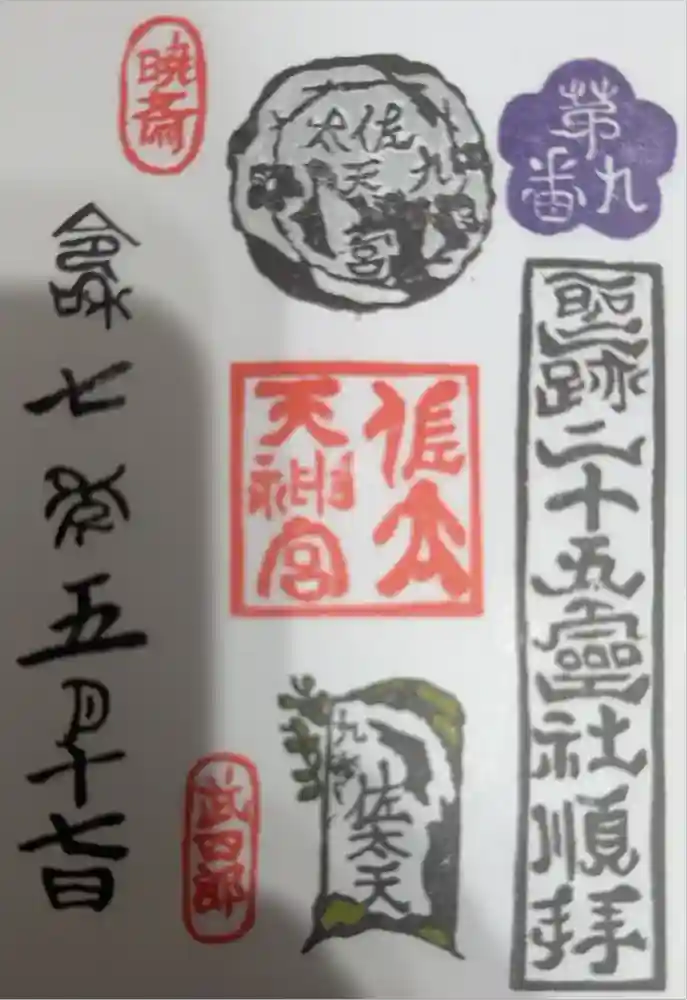 第九番
聖跡二十五靈社順拝
九
佐太天宮
佐太
天神宮
九
佐太天
暁斎
武四郎
令和七年五月十七日